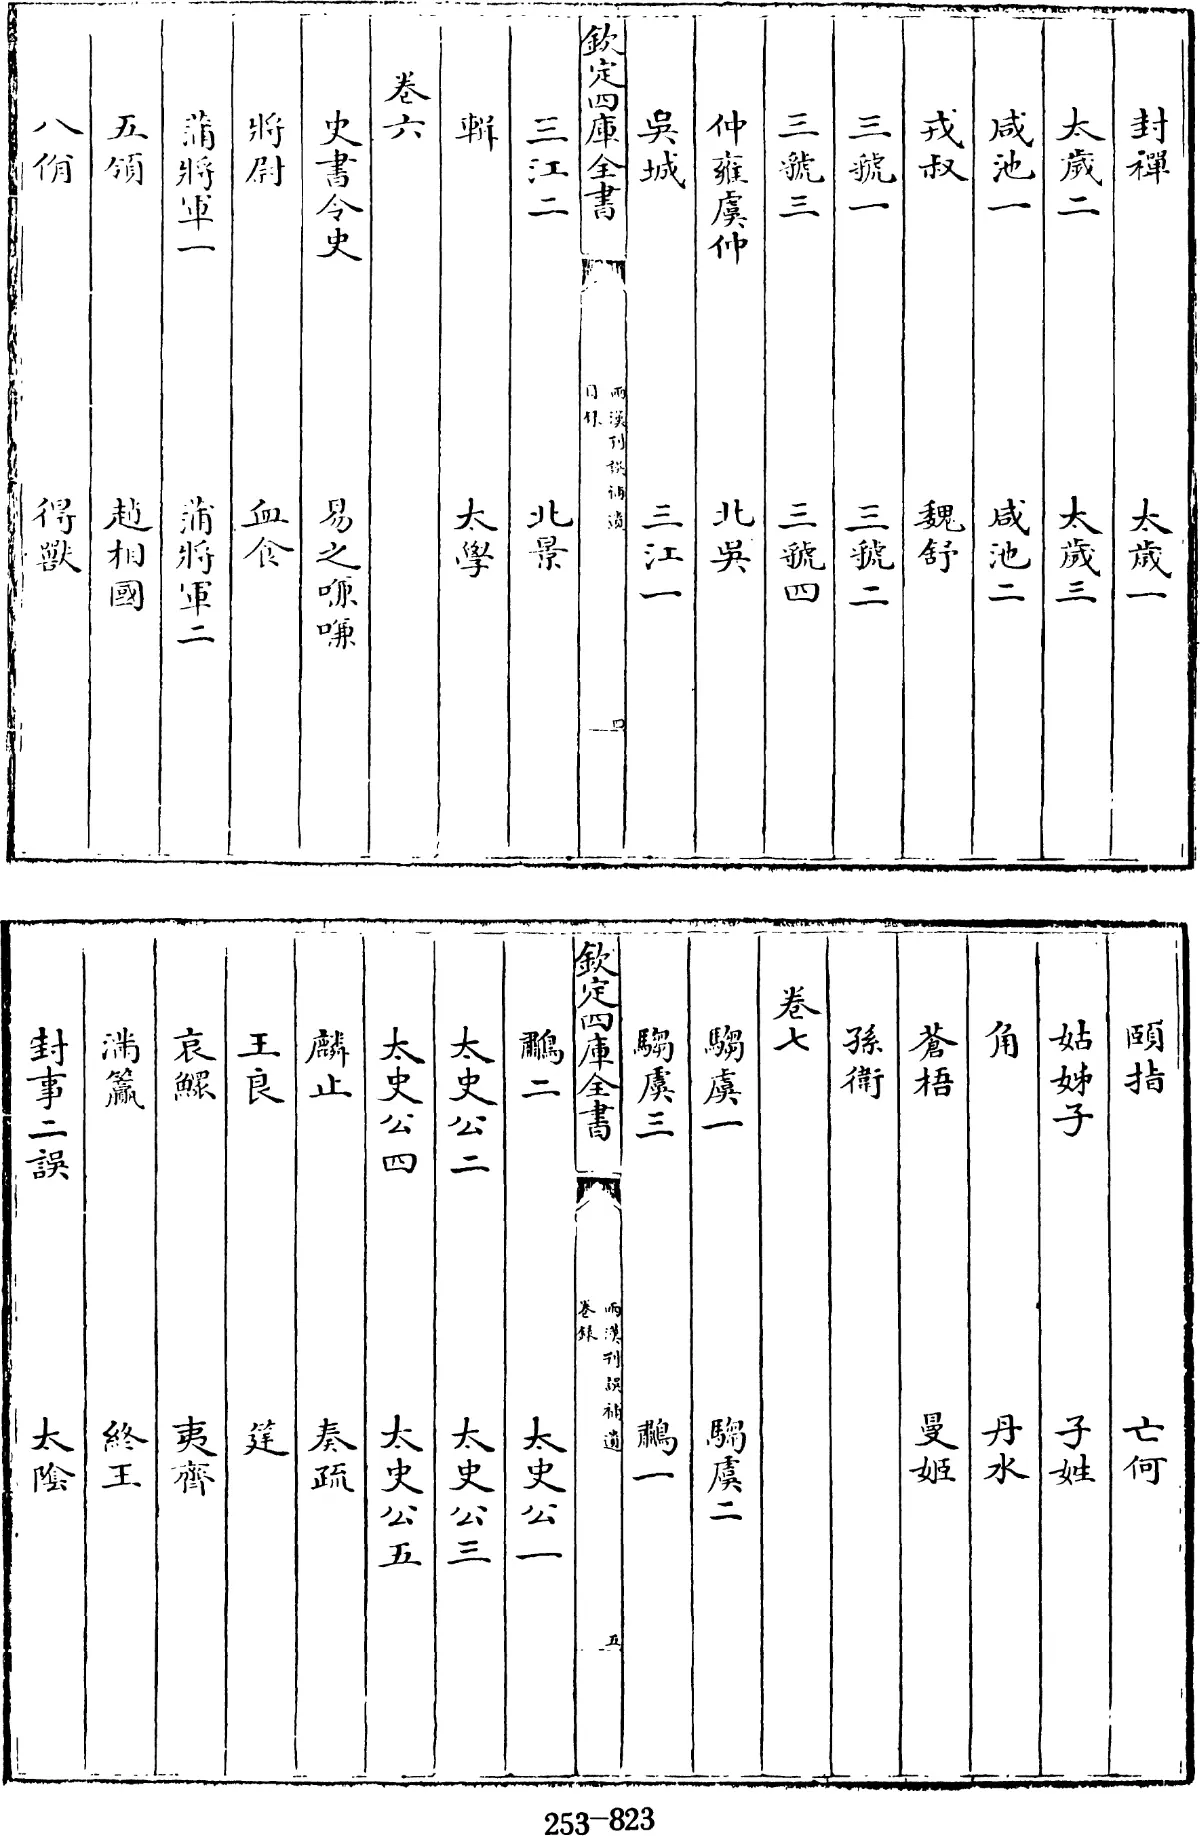 封禪　太歲一
太歲二　太歲三
咸池一　咸池二
戎叔　魏舒
三號一　三號二
三號三　三號四
仲雍虞仲　北吳
吳城　三江一
欽定四庫全書　兩漢刊誤補遺　目錄　四
三江二　北景
太學
卷六
史書令史　易之嗛嗛
將尉　血食
蒲將軍一　蒲將軍二
五領　趙相國
八佾　得獸
頤指　亡何
姑姊子　子姓
角　丹水
蒼梧　曼姬
孫衛
卷七
騶虞一　騶虞二
騶虞三　鷫一
欽定四庫全書　兩漢刊誤補遺　卷錄　五
鷫二　太史公一
太史公二　太史公三
太史公四　太史公五
麟止　奏疏
王良　筳
哀鰥　夷齊
滿籯　終王
封事二誤　太陰
253-823